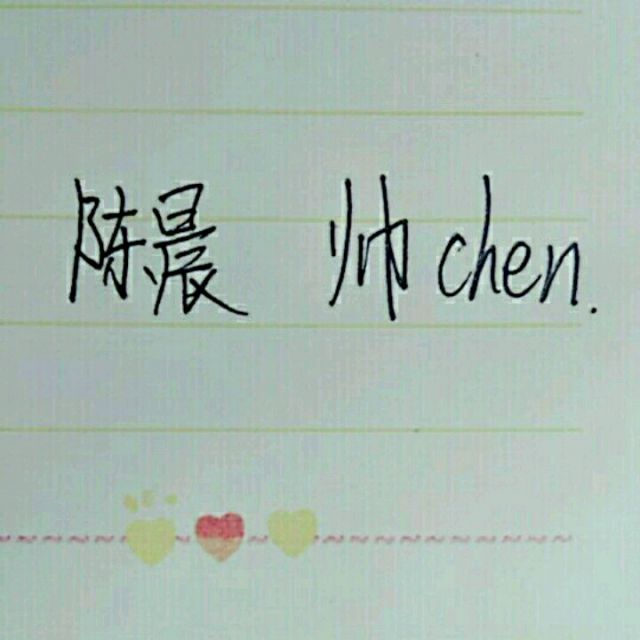 陈晨 帅chen.